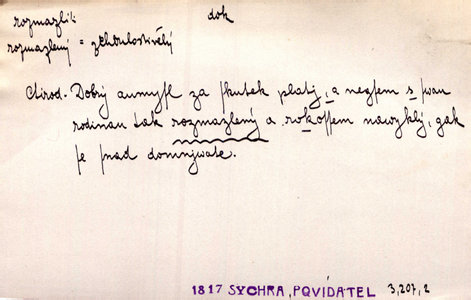 rozmazliti
dok
rozmazlený = zchoulostivělý
Ctirod. Dobrý aumysl za skutek platj, a negsem s swau
rodinau tak rozmazlený a rokossem nawyklý, gak
se snad domnjwáte.
1817 SYCHRA, POVÍDATEL 3,207,2